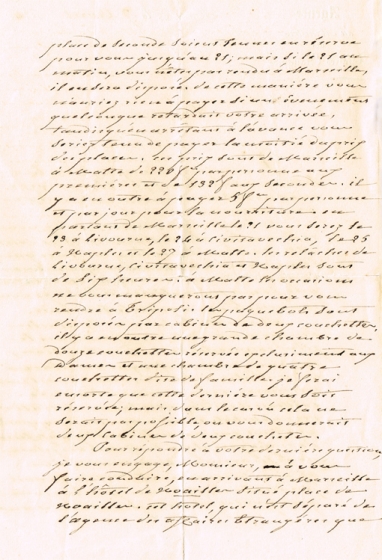 place de seconde soient tenues en réserve
pour vous jusqu'au 21; mais si le 21 au
matin, vous n'êtes pas rendu à Marseille,
il en sera disposé. de cette manière vous
n'auriez rien à payer si un évènement
quelconque retardait votre arrivée,
tandis qu'en arrêtant à l'avance vous
seriez tenu de payer la moitié du prix
des places. les prix sont de Marseille
à Malte de 226 f. par personne aux
premières et de 132 f. aux secondes. il
y a en outre à payer 5 f. par personne
et par jour pour la nourriture. en
partant de Marseille le 21 vous serez le
23 à Livourne, le 24 à Civitavecchia, le 25
à Naples et le 27 à Malte. les relâches de
Livourne, Civitavecchia et Naples sont
de six heures. à Malte les occasions
ne vous manqueront pas pour vous
rendre à Tripoli. les paquebots sont
disposés par cabines de deux couchettes,
il y a en outre une grande chambre de
douze couchettes réservée exclusivement aux
Dames et une chambre de quatre
couchettes dite de famille. je ferai
en sorte que cette dernière vous soit
réservée; mais, dans le cas où cela ne
serait pas possible, on vous donnerait
deux cabines de deux couchettes.
Pour répondre à votre dernière question
je vous engage, Monsieur, à vous
faire conduire, en arrivant à Marseille
à l'hôtel de Noailles situé place de
Noailles. cet hôtel, qui est séparé de
l'agence des affaires Etrangères que